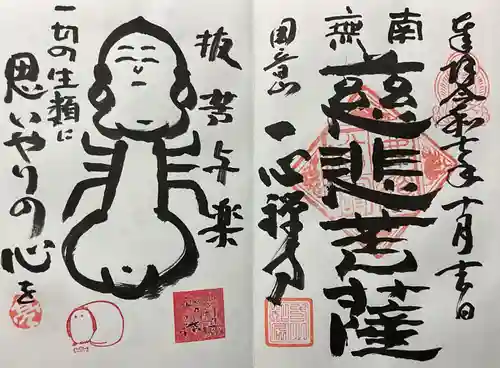 令和七年十月吉日
南無
慈悲菩薩
一心禅寺
抜苦与楽
一切の生類に
思いやりの心を